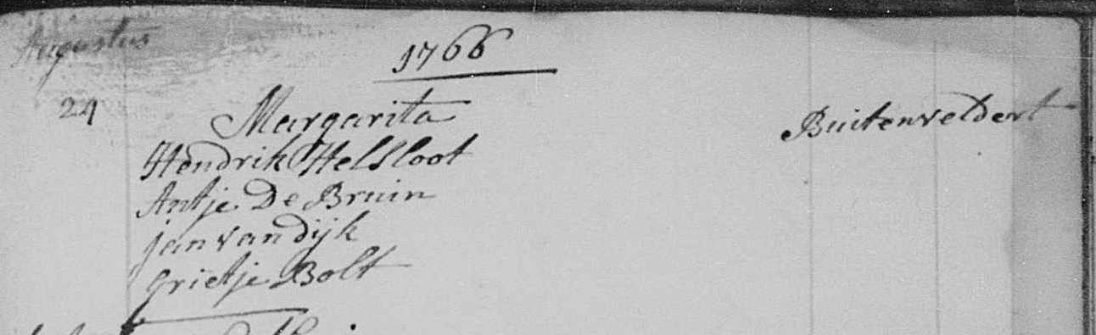 Augustus
1766
24
Margarita
Buitenveldert
Hendrik Helsloot
Antje De Bruin
jan van dijk
grietje Bolt